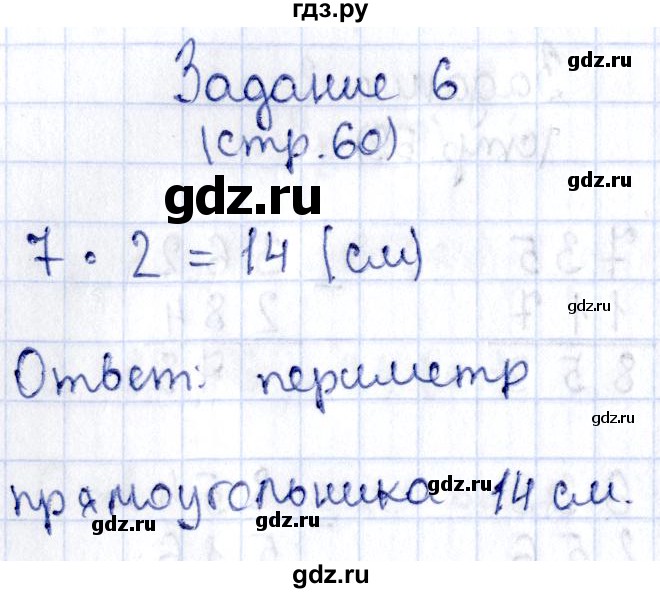 гдз.ру
Задание 6
gdz.ru
(стр. 60)
gdz.ru
gdz.ru
7 · 2 = 14 (см)
gdz.ru
gdz.ru
Ответ: периметр
gdz.ru
прямоугольника 14 см.
gdz.ru
gdz.ru
gdz.ru
gdz.ru